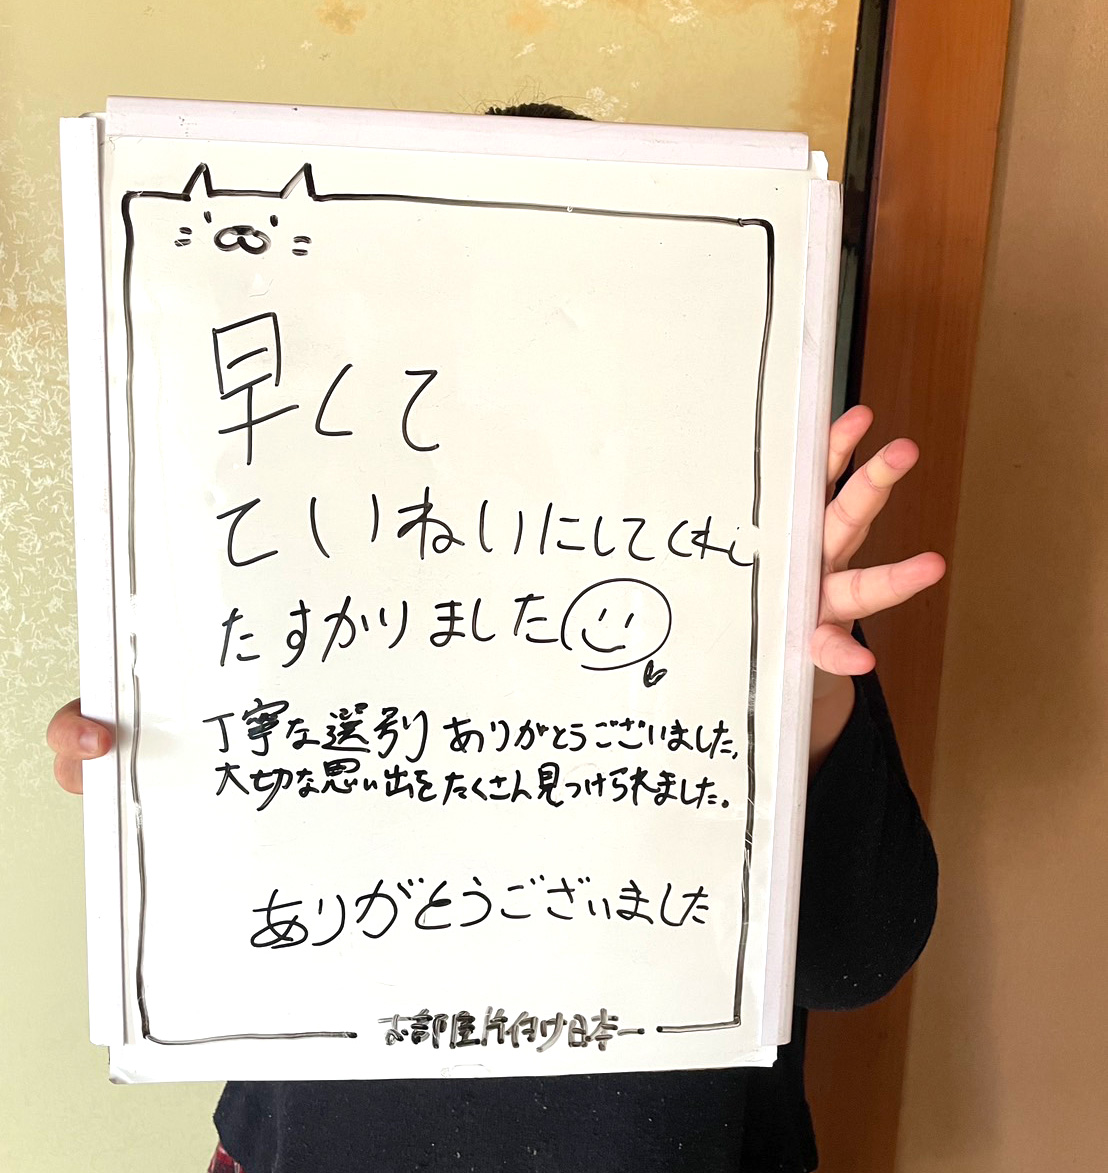 早くて
ていねいにしてくれ
たすかりました
丁寧な選別りありがとうございました。
大切な思い出をたくさん見つけられました。
ありがとうございました
お部屋片付け日本一